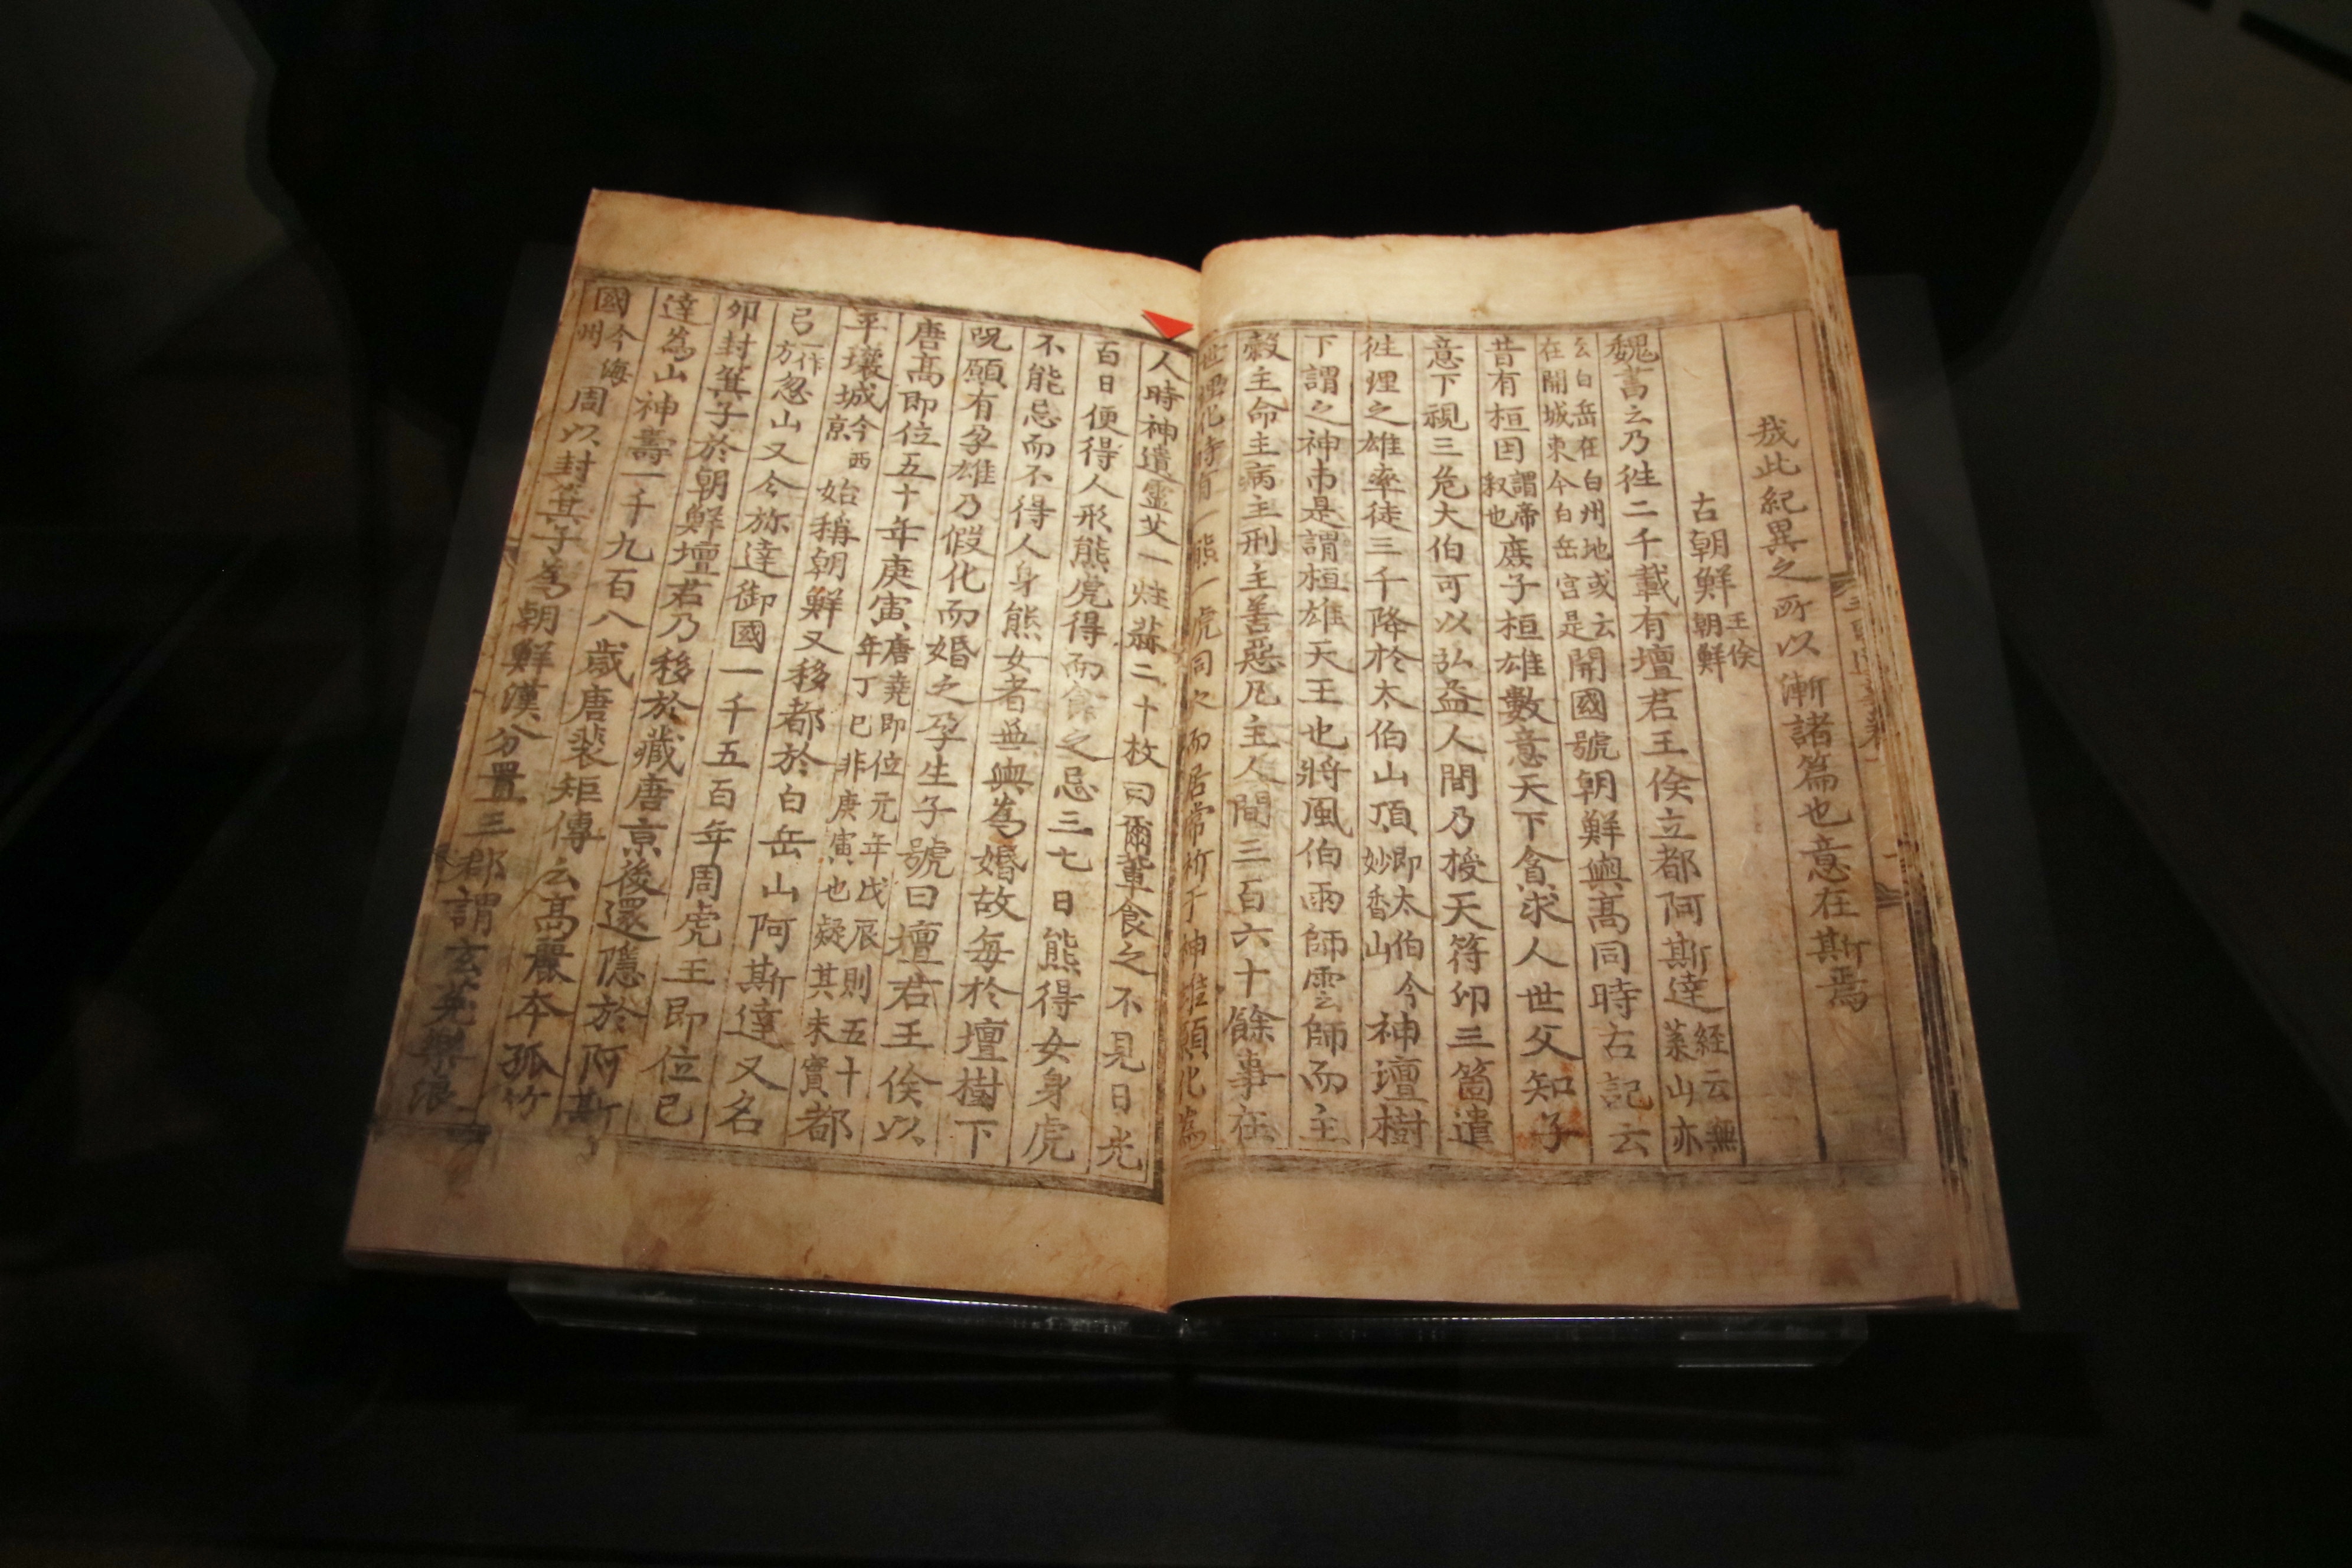 哉此紀異之所以漸諸篇也意在斯焉
古朝鮮 王儉朝鮮
魏書云乃徃二千載有壇君王儉立都阿斯達 経云無葉山亦
云白岳在白州地或云在開城東今白岳宮是 開國號朝鮮與高同時古記云
昔有桓囯 謂帝釈也 庻子桓雄數意天下貪求人世父知子
意下視三危大伯可以弘益人間乃授天符印三箇遣
徃理之雄率徒三千降於太伯山頂 即太伯今妙香山 神壇樹
下謂之神市是謂桓雄天王也將風伯雨師雲師而主
糓主命主病主刑主善惡凡主人間三百六十餘事在
世理化時有一熊一虎同穴而居常祈于神雄願化為
人時神遺霊艾一炷蒜二十枚曰爾軰食之不見日光
百日便得人形熊虎得而食之忌三七日熊得女身虎
不能忌而不得人身熊女者無與為婚故每於壇樹下
呪願有孕雄乃假化而婚之孕生子號曰壇君王儉以
唐髙即位五十年庚寅 唐堯即位元年戊辰則五十年丁巳非庚寅也疑其未實 都
平壤城 今西京 始稱朝鮮又移都於白岳山阿斯達又名
弓 一作方 忽山又今旀達御國一千五百年周虎王即位己
卯封箕子於朝鮮壇君乃移於藏唐京後還隱於阿斯
達為山神壽一千九百八歲唐裴矩傳云髙麗本孤竹
國 今海州 周以封箕子為朝鮮漢分置三郡謂玄菟樂浪